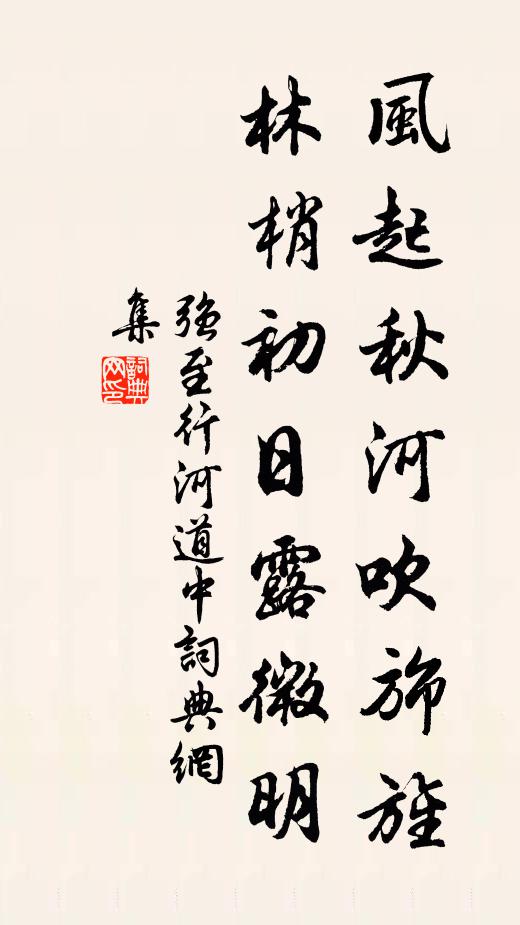 風起秋河吹斾旌
林梢初日露微明
強至行河道中詞典網
集
詞典
网印